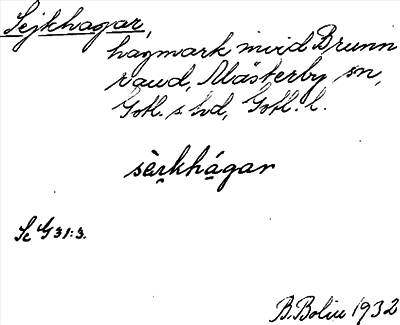 Sejkhagar,
hagmark invid Brunn
raud, Mästerby sn,
Gotl. s. hd, Gotl. l.
sèrkhágar
Se G 31:3.
B. Bolin 1932